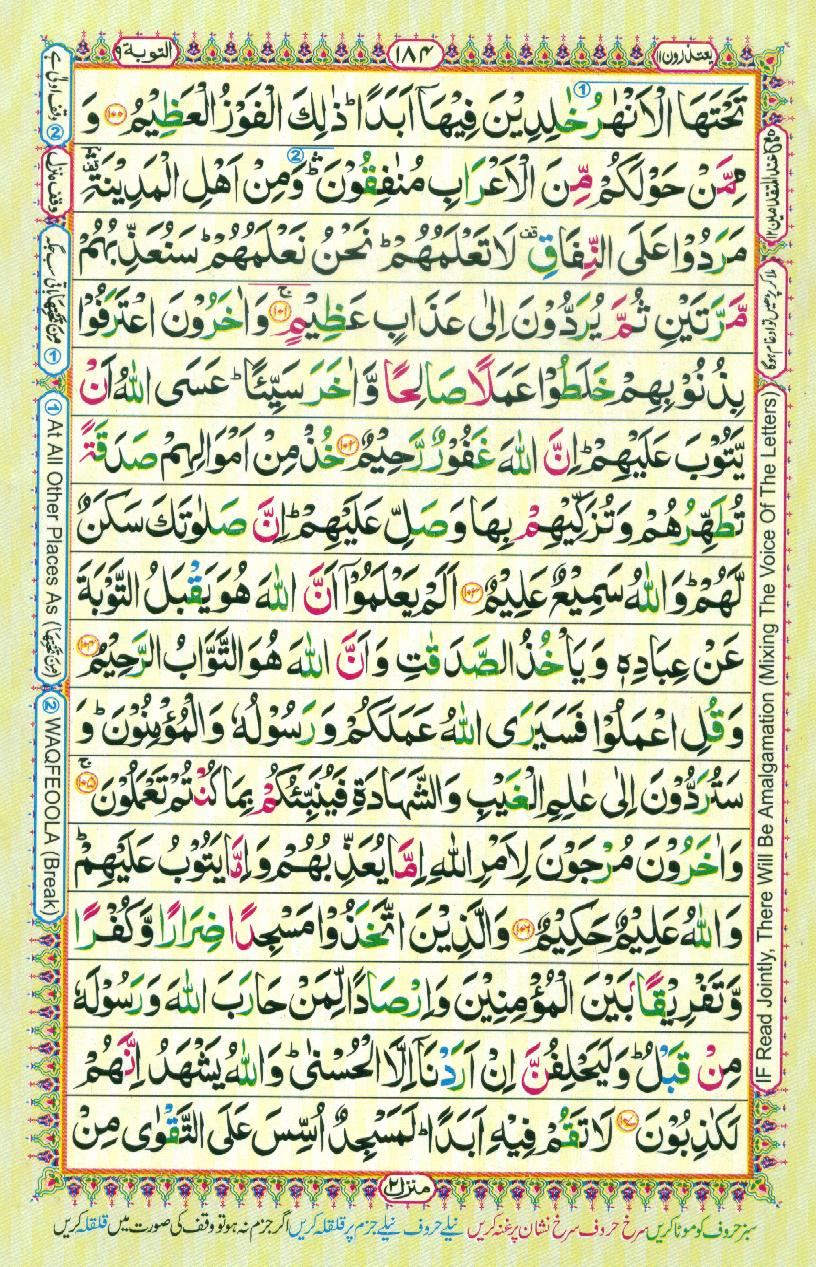 يعتذرون ١١
١٨٤
التوبة ٩
تَحْتَهَا الْاَنْهٰرُ خٰلِدِيْنَ فِيْهَاۤ اَبَدًا ؕ ذٰلِكَ الْفَوْزُ الْعَظِيْمُ ﴿۱۰۰﴾ وَ
مِمَّنْ حَوْلَكُمْ مِّنَ الْاَعْرَابِ مُنٰفِقُوْنَ ۛؕ وَمِنْ اَهْلِ الْمَدِيْنَةِ ۛ
مَرَدُوْا عَلَى النِّفَاقِ ۟ لَا تَعْلَمُهُمْ ؕ نَحْنُ نَعْلَمُهُمْ ؕ سَنُعَذِّبُهُمْ
مَّرَّتَيْنِ ثُمَّ يُرَدُّوْنَ اِلٰى عَذَابٍ عَظِيْمٍ ﴿۱۰۱﴾ۚ وَاٰخَرُوْنَ اعْتَرَفُوْا
بِذُنُوْبِهِمْ خَلَطُوْا عَمَلًا صَالِحًا وَّاٰخَرَ سَيِّئًا ؕ عَسَى اللّٰهُ اَنْ
يَّتُوْبَ عَلَيْهِمْ ؕ اِنَّ اللّٰهَ غَفُوْرٌ رَّحِيْمٌ ﴿۱۰۲﴾ خُذْ مِنْ اَمْوَالِهِمْ صَدَقَةً
تُطَهِّرُهُمْ وَتُزَكِّيْهِمْ بِهَا وَصَلِّ عَلَيْهِمْ ؕ اِنَّ صَلٰوتَكَ سَكَنٌ
لَّهُمْ ؕ وَاللّٰهُ سَمِيْعٌ عَلِيْمٌ ﴿۱۰۳﴾ اَلَمْ يَعْلَمُوْۤا اَنَّ اللّٰهَ هُوَ يَقْبَلُ التَّوْبَةَ
عَنْ عِبَادِهٖ وَيَاْخُذُ الصَّدَقٰتِ وَاَنَّ اللّٰهَ هُوَ التَّوَّابُ الرَّحِيْمُ ﴿۱۰۴﴾
وَقُلِ اعْمَلُوْا فَسَيَرَى اللّٰهُ عَمَلَكُمْ وَرَسُوْلُهٗ وَالْمُؤْمِنُوْنَ ؕ وَ
سَتُرَدُّوْنَ اِلٰى عٰلِمِ الْغَيْبِ وَالشَّهَادَةِ فَيُنَبِّئُكُمْ بِمَا كُنْتُمْ تَعْمَلُوْنَ ﴿۱۰۵﴾ۚ
وَاٰخَرُوْنَ مُرْجَوْنَ لِاَمْرِ اللّٰهِ اِمَّا يُعَذِّبُهُمْ وَاِمَّا يَتُوْبُ عَلَيْهِمْ ؕ
وَاللّٰهُ عَلِيْمٌ حَكِيْمٌ ﴿۱۰۶﴾ وَالَّذِيْنَ اتَّخَذُوْا مَسْجِدًا ضِرَارًا وَّكُفْرًا
وَّتَفْرِيْقًۢا بَيْنَ الْمُؤْمِنِيْنَ وَاِرْصَادًا لِّمَنْ حَارَبَ اللّٰهَ وَرَسُوْلَهٗ
مِنْ قَبْلُ ؕ وَلَيَحْلِفُنَّ اِنْ اَرَدْنَاۤ اِلَّا الْحُسْنٰى ؕ وَاللّٰهُ يَشْهَدُ اِنَّهُمْ
لَكٰذِبُوْنَ ﴿۱۰۷﴾ لَا تَقُمْ فِيْهِ اَبَدًا ؕ لَمَسْجِدٌ اُسِّسَ عَلَى التَّقْوٰى مِنْ
منزل ٢
سبز حروف کو موٹا کریں سرخ حروف سرخ نشان پر غنہ کریں نیلے حروف نیلے جزم پر قلقلہ کریں اگر جزم نہ ہو تو وقف کی صورت میں قلقلہ کریں
② وقف اولیٰ ہے
وقف منزل
① مِنْ تَحْتِهَا باقی سب جگہ
① At All Other Places As (مِنْ تَحْتِهَا)
② WAQFEOOLA (Break)
IF Read Jointly, There Will Be Amalgamation (Mixing The Voice Of The Letters)